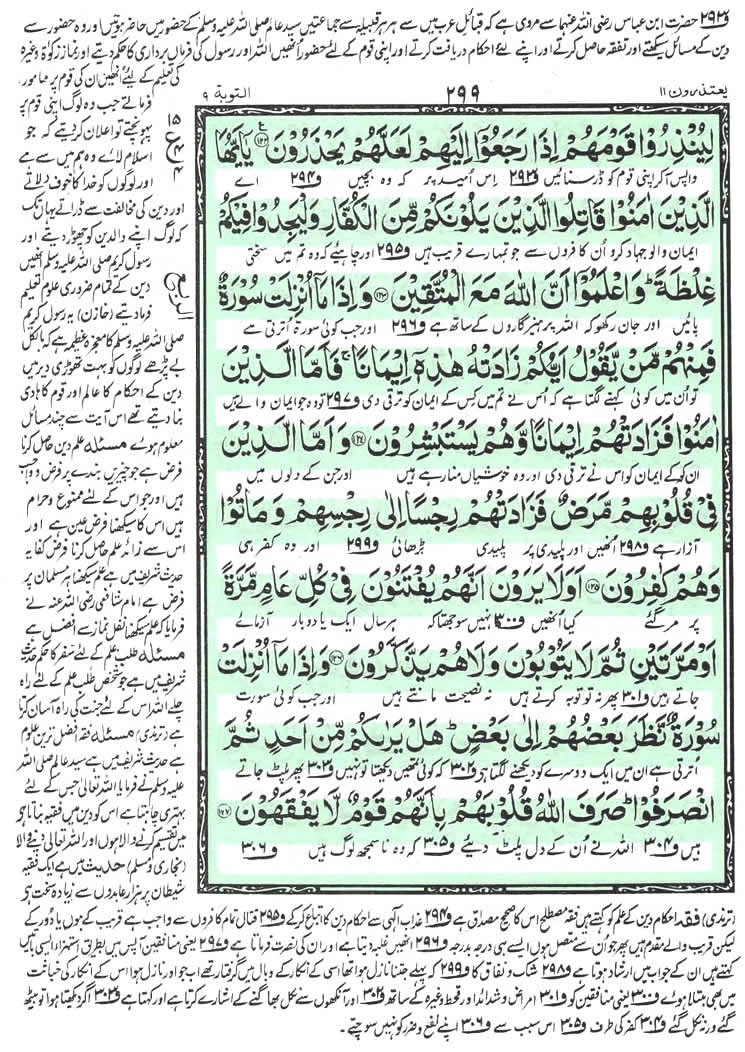 و۲۹۲ حضرت ابن عباس رضی اللہ عنہما سے مروی ہے کہ قبائل عرب میں سے ہر ہر قبیلہ سے جماعتیں سید عالم صلی اللہ علیہ وسلم کے حضور میں حاضر ہوتیں اور وہ حضور سے
دین کے مسائل سیکھتے اور تفقہ حاصل کرتے اور اپنے لئے احکام دریافت کرتے اور اپنی قوم کے لئے حضور انھیں اللہ اور رسول کی فرماں برداری کا حکم دیتے اور نماز زکوٰۃ وغیرہ
یعتذرون ۱۱
۲۹۹
التوبة ۹
لِيُنْذِرُوْا قَوْمَهُمْ اِذَا رَجَعُوْٓا اِلَيْهِمْ لَعَلَّهُمْ يَحْذَرُوْنَ ۝۱۲۲ يٰٓاَيُّهَا
واپس آکر اپنی قوم کو ڈر سنائیں و۲۹۳ اس امید پر کہ وہ بچیں و۲۹۴ اے
الَّذِيْنَ اٰمَنُوْا قَاتِلُوا الَّذِيْنَ يَلُوْنَكُمْ مِّنَ الْكُفَّارِ وَلْيَجِدُوْا فِيْكُمْ
ایمان والو جہاد کرو اُن کافروں سے جو تمہارے قریب ہیں و۲۹۵ اور چاہیئے کہ وہ تم میں سختی
غِلْظَةً ؕ وَاعْلَمُوْٓا اَنَّ اللّٰهَ مَعَ الْمُتَّقِيْنَ ۝۱۲۳ وَاِذَا مَآ اُنْزِلَتْ سُوْرَةٌ
پائیں اور جان رکھو کہ اللہ پرہیزگاروں کے ساتھ ہے و۲۹۶ اور جب کوئی سورۃ اُترتی ہے
فَمِنْهُمْ مَّنْ يَّقُوْلُ اَيُّكُمْ زَادَتْهُ هٰذِهٖٓ اِيْمَانًا ۚ فَاَمَّا الَّذِيْنَ
تو اُن میں کوئی کہنے لگتا ہے کہ اُس نے تم میں کس کے ایمان کو ترقی دی و۲۹۷ تو وہ جو ایمان والے ہیں
اٰمَنُوْا فَزَادَتْهُمْ اِيْمَانًا وَّهُمْ يَسْتَبْشِرُوْنَ ۝۱۲۴ وَاَمَّا الَّذِيْنَ
ان کے ایمان کو اس نے ترقی دی اور وہ خوشیاں منا رہے ہیں اور جن کے دلوں میں
فِيْ قُلُوْبِهِمْ مَّرَضٌ فَزَادَتْهُمْ رِجْسًا اِلٰى رِجْسِهِمْ وَمَاتُوْا
آزار ہے و۲۹۸ اُنھیں اور پلیدی پر پلیدی بڑھائی و۲۹۹ اور وہ کفر ہی
وَهُمْ كٰفِرُوْنَ ۝۱۲۵ اَوَلَا يَرَوْنَ اَنَّهُمْ يُفْتَنُوْنَ فِيْ كُلِّ عَامٍ مَّرَّةً
پر مر گئے کیا اُنھیں و۳۰۰ نہیں سوجھتا کہ ہر سال ایک یا دو بار آزمائے
اَوْ مَرَّتَيْنِ ثُمَّ لَا يَتُوْبُوْنَ وَلَا هُمْ يَذَّكَّرُوْنَ ۝۱۲۶ وَاِذَا مَآ اُنْزِلَتْ
جاتے ہیں و۳۰۱ پھر نہ تو توبہ کرتے ہیں نہ نصیحت مانتے ہیں اور جب کوئی سورت
سُوْرَةٌ نَّظَرَ بَعْضُهُمْ اِلٰى بَعْضٍ ؕ هَلْ يَرٰىكُمْ مِّنْ اَحَدٍ ثُمَّ
اُترتی ہے ان میں ایک دوسرے کو دیکھنے لگتا ہے و۳۰۲ کہ کوئی تمھیں دیکھتا تو نہیں و۳۰۳ پھر پلٹ جاتے
انْصَرَفُوْا ؕ صَرَفَ اللّٰهُ قُلُوْبَهُمْ بِاَنَّهُمْ قَوْمٌ لَّا يَفْقَهُوْنَ ۝۱۲۷
ہیں و۳۰۴ اللہ نے اُن کے دل پلٹ دیئے و۳۰۵ کہ وہ ناسمجھ لوگ ہیں و۳۰۶
۱۵
ع
۴
الربع
کی تعلیم کے لئے انھیں ان کی قوم پر مامور
فرماتے جب وہ لوگ اپنی قوم پر
پہونچتے تو اعلان کر دیتے کہ جو
اسلام لائے وہ ہم میں سے ہے
اور لوگوں کو خدا کا خوف دلاتے
اور دین کی مخالفت سے ڈراتے یہاں تک
کہ لوگ اپنے والدین کو چھوڑ دیتے اور
رسول کریم صلی اللہ علیہ وسلم انھیں
دین کے تمام ضروری علوم تعلیم
فرما دیتے (خازن) یہ رسول کریم
صلی اللہ علیہ وسلم کا معجزہ عظیمہ ہے کہ بالکل
بے پڑھے لوگوں کو بہت تھوڑی دیر میں
دین کے احکام کا عالم اور قوم کا ہادی
بنا دیتے تھے اس آیت سے چند مسائل
معلوم ہوئے مسئلہ علم دین حاصل کرنا
فرض ہے جو چیزیں بندے پر فرض و واجب
ہیں اور جو اس کے لئے ممنوع و حرام
ہیں اس کا سیکھنا فرض عین ہے اور
اس سے زائد علم حاصل کرنا فرض کفایہ
حدیث شریف میں ہے علم سیکھنا ہر مسلمان پر
فرض ہے امام شافعی رضی اللہ عنہ نے
فرمایا کہ علم سیکھنا نفل نماز سے افضل ہے
مسئلہ طلب علم کے لئے سفر کا حکم حدیث
شریف میں ہے جو شخص طلب علم کے لئے راہ
چلے اللہ اس کے لئے جنت کی راہ آسان کرتا
ہے (ترمذی) مسئلہ فقہ افضل ترین علوم
ہے حدیث شریف میں ہے سید عالم صلی اللہ
علیہ وسلم نے فرمایا اللہ تعالیٰ جس کے لئے
بہتری چاہتا ہے اس کو دین میں فقیہ بناتا ہے
میں تقسیم کرنے والا ہوں اور اللہ تعالیٰ دینے والا
(بخاری و مسلم) حدیث میں ہے ایک فقیہ
شیطان پر ہزار عابدوں سے زیادہ سخت ہے
(ترمذی) فقہ احکام دین کے علم کو کہتے ہیں فقہ مصطلح اس کا صحیح مصداق ہے و۲۹۴ عذاب الٰہی سے احکام دین کا اتباع کر کے و۲۹۵ قتال تمام کافروں سے واجب ہے قریب کے ہوں یا دور کے
لیکن قریب والے مقدم ہیں پھر جو اُن سے متصل ہوں ایسے ہی درجہ بدرجہ و۲۹۶ انھیں غلبہ دیتا ہے اور ان کی نصرت فرماتا ہے و۲۹۷ یعنی منافقین آپس میں بطریق استہزاء ایسی باتیں
کہتے ہیں ان کے جواب میں ارشاد ہوتا ہے و۲۹۸ شک و نفاق کا و۲۹۹ کہ پہلے جتنا نازل ہوا تھا اسی کے انکار کے وبال میں گرفتار تھے اب جو اور نازل ہوا اس کے انکار کی خباثت
میں بھی مبتلا ہوئے و۳۰۰ یعنی منافقین کو و۳۰۱ امراض و شدائد اور قحط وغیرہ کے ساتھ و۳۰۲ اور آنکھوں سے نکل بھاگنے کے اشارے کرتا ہے اور کہتا ہے و۳۰۳ اگر دیکھتا ہوا تو بیٹھ
گئے ورنہ نکل گئے و۳۰۴ کفر کی طرف و۳۰۵ اس سبب سے و۳۰۶ اپنے نفع و ضرر کو نہیں سوچتے۔